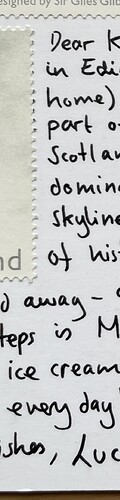 esigned by Sir Giles Gilb
Dear K
in Edi
home)
part o
Scotlan
domina
skyline
of his
nd
d away –
teps is M
ice cream
every day
ishes, Luc